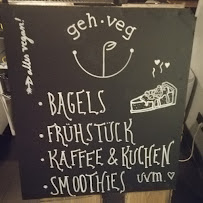 alles vegan!
geh·veg
· BAGELS
· FRÜHSTÜCK
· KAFFEE & KUCHEN
· SMOOTHIES uvm.